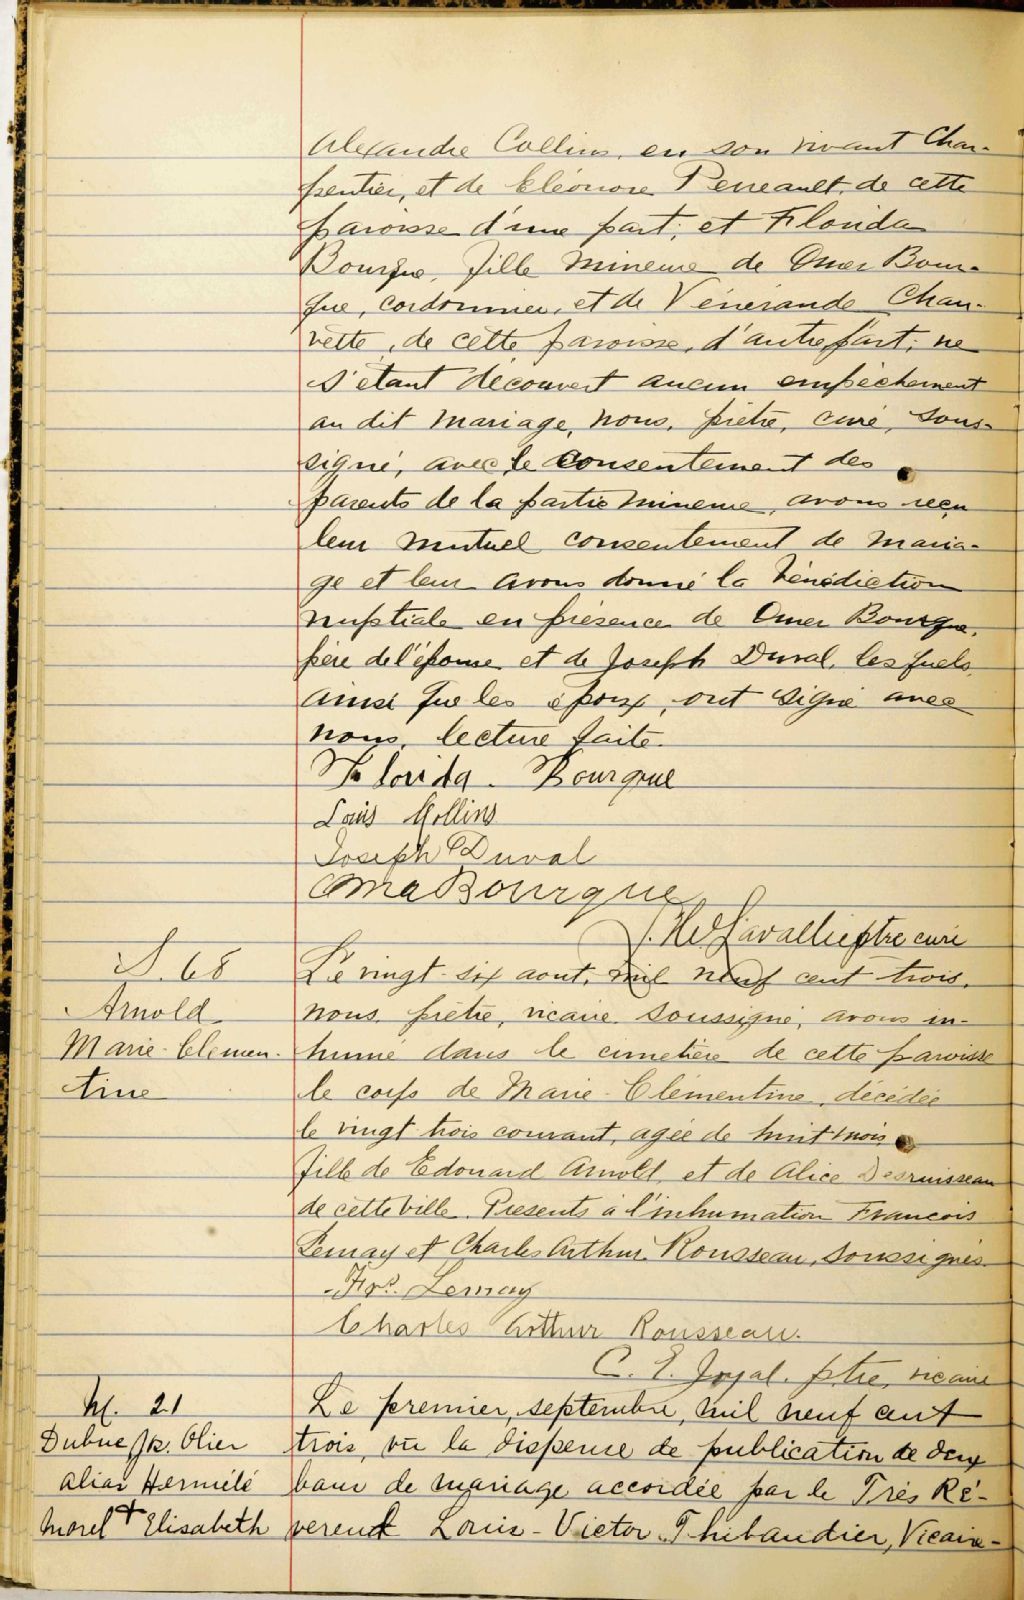 Alexandre Collins, en son vivant Char-
pentier, et de Eléonore Perreault, de cette
paroisse d'une part; et Florida
Bourque, fille mineure de Omer Bour-
que, cordonnier, et de Vénérande Chau-
vette, de cette paroisse, d'autre part; ne
s'étant découvert aucun empêchement
au dit mariage, nous, prêtre, curé, sous-
signé, avec le consentement des
parents de la partie mineure, avons reçu
leur mutuel consentement de maria-
ge et leur avons donné la bénédiction
nuptiale en présence de Omer Bourque,
père de l'épouse et de Joseph Duval, lesquels,
ainsi que les époux, ont signé avec
nous, lecture faite.
Florida. Bourque
Louis Collins
Joseph Duval
Bourque
Lavallée ptre curé
S. 68
Arnold
Marie-Clémen-
tine
Le vingt-six aout, mil neuf cent trois,
nous, prêtre, vicaire soussigné, avons in-
humé dans le cimetière de cette paroisse
le corps de Marie-Clémentine, décédée
le vingt trois courant, agée de huit mois
fille de Edouard Arnold, et de Alice Desruisseau
de cette ville. Présents à l'inhumation François
Lemay et Charles Arthur Rousseau, soussignés.
Frs. Lemay
Charles Arthur Rousseau.
C. E. Joyal. ptre, vicaire
M. 21
Dubuc Jos. Olier
alias Herméné
Morel + Elisabeth
Le premier, septembre, mil neuf cent
trois, vu la dispense de publication de deux
bans de mariage accordée par le Très Ré-
verend Louis-Victor Thibaudier, Vicaire-